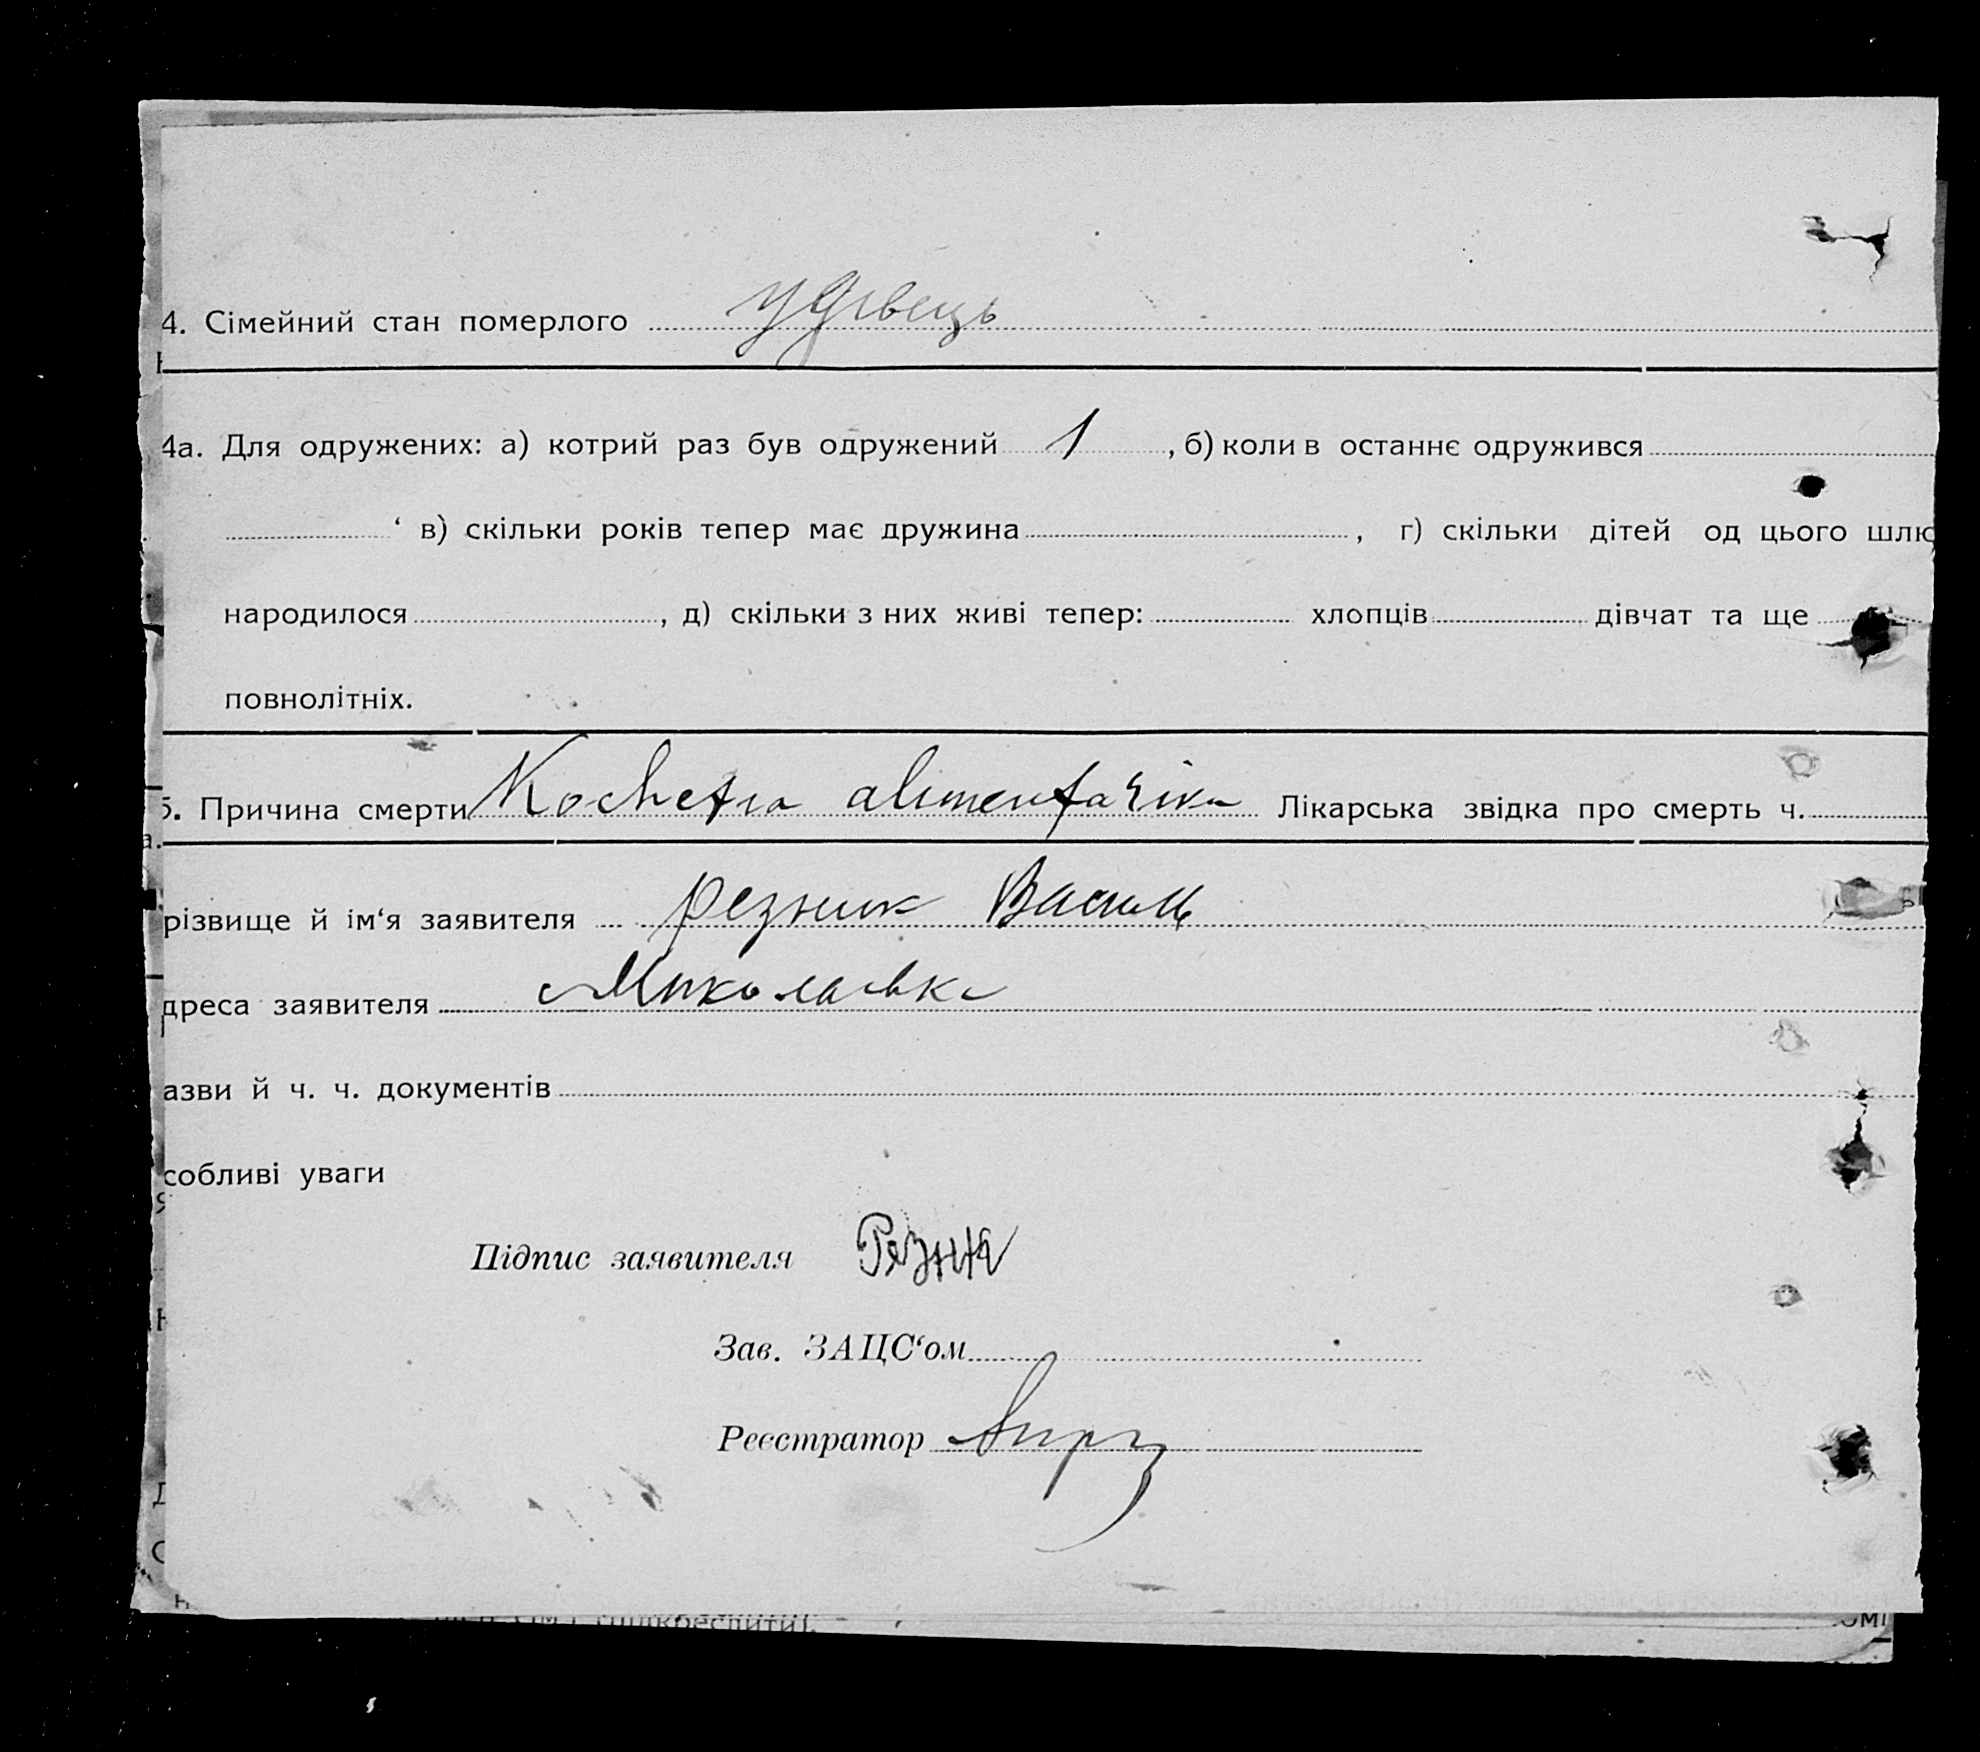 4. Сімейний стан померлого удівець
4а. Для одружених: а) котрий раз був одружений 1, б) коли в останнє одружився
‘ в) скільки років тепер має дружина , г) скільки дітей од цього шлю
народилося , д) скільки з них живі тепер: хлопців дівчат та ще
повнолітніх.
5. Причина смерти Kachetia alimentaria Лікарська звідка про смерть ч.
різвище й ім‘я заявителя Резник Василь
дреса заявителя Миколаєвка
азви й ч. ч. документів
собливі уваги
Підпис заявителя
Зав. ЗАЦС‘ом
Реєстратор